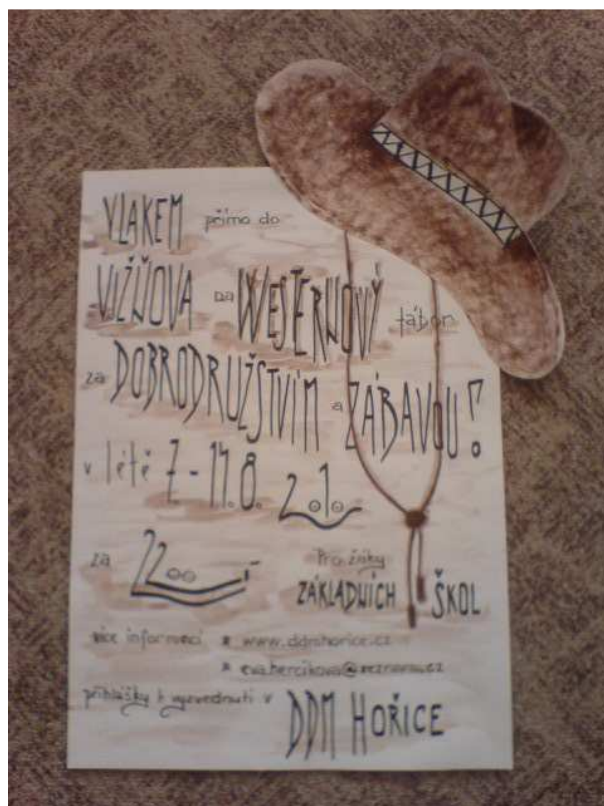 VLAKEM přímo do
VIŽŇOVA na WESTERNOVÝ tábor
za DOBRODRUŽSTVÍM a ZÁBAVOU!
v létě 7.-14.8. 2010
za 2200,-
Pro žáky
ZÁKLADNÍCH ŠKOL
více informací * www.ddmhorice.cz
* eva.hercikova@seznam.cz
přihlášky k vyzvednutí v
DDM HOŘICE